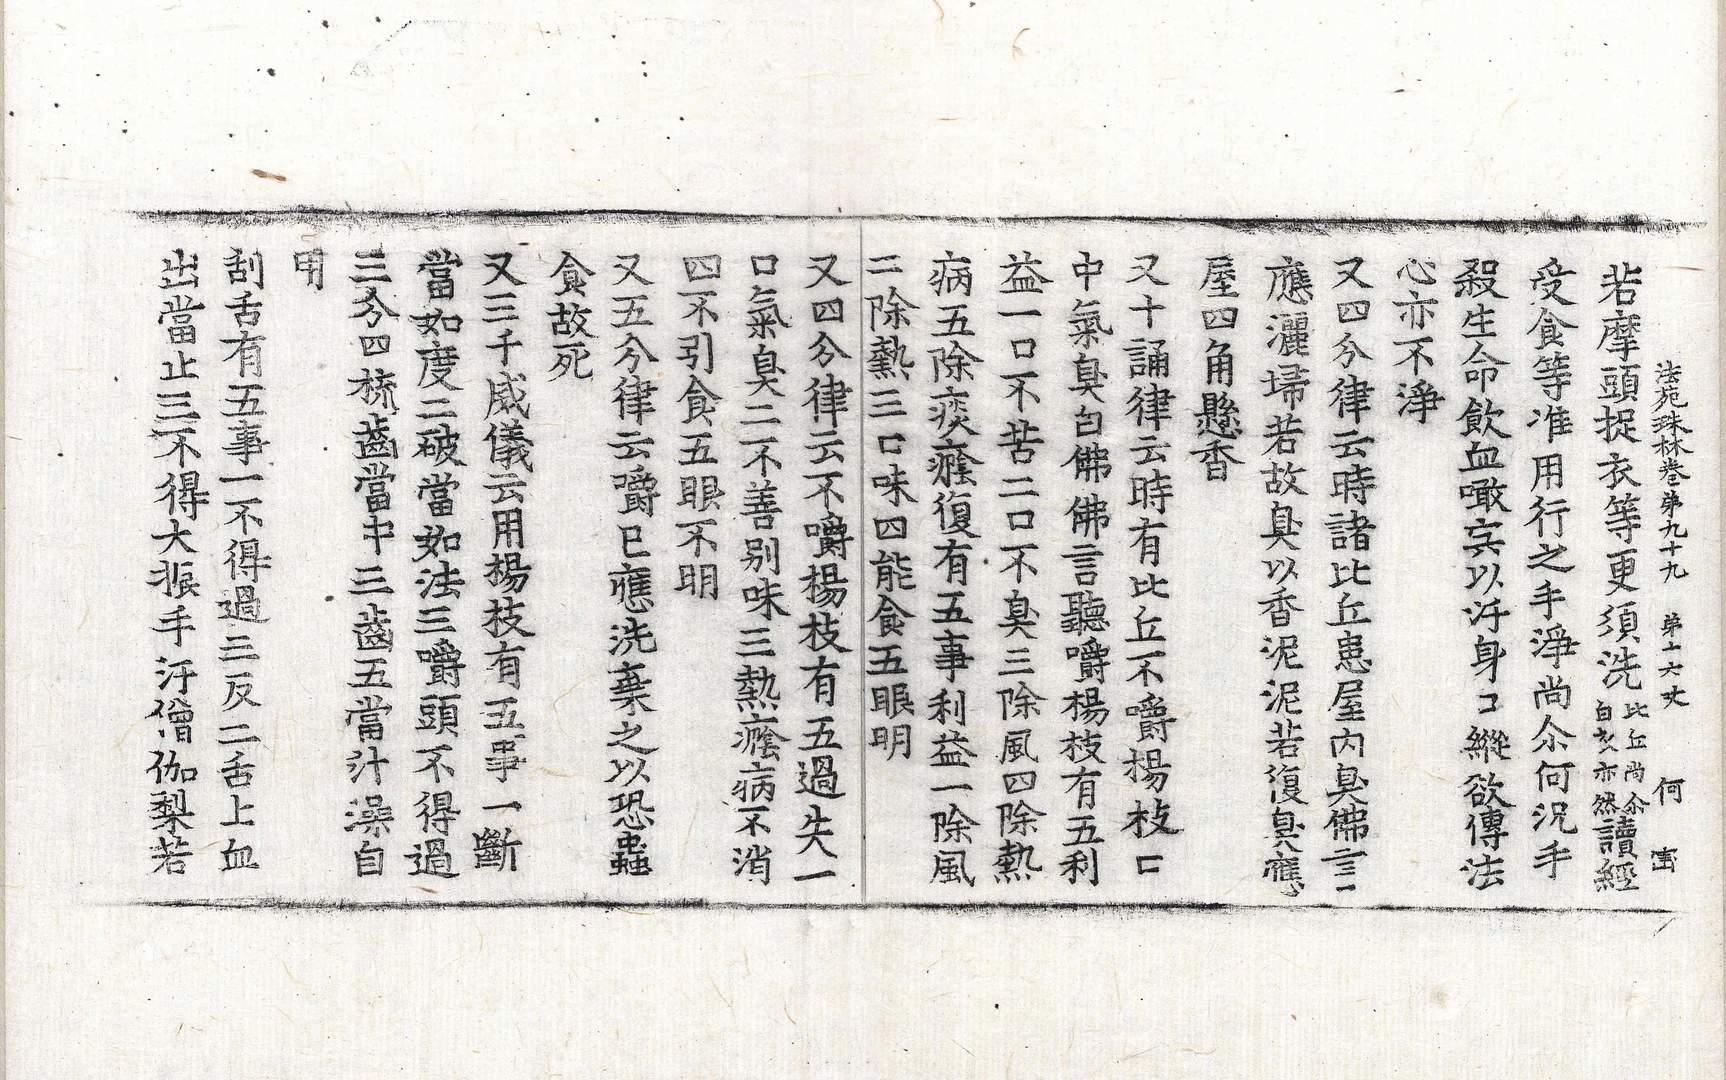 法苑珠林卷第九十九 第十六丈 何
若摩頭捉衣等更須洗比丘尚尒白衣亦然讀經
受食等准用行之手淨尚尒何況手
殺生命飲血噉肉以汙身口縱欲傳法
心亦不淨
又四分律云時諸比丘患屋內臭佛言
應灑埽若故臭以香泥泥若復臭應
屋四角懸香
又十誦律云時有比丘不嚼楊枝口
中氣臭白佛佛言聽嚼楊枝有五利
益一口不苦二口不臭三除風四除熱
病五除痰癊復有五事利益一除風
二除熱三口味四能食五眼明
又四分律云不嚼楊枝有五過失一
口氣臭二不善別味三熱癊病不消
四不引食五眼不明
又五分律云嚼已應洗棄之以恐蟲
食故死
又三千威儀云用楊枝有五事一斷
當如度二破當如法三嚼頭不得過
三分四梳齒當中三齒五當汁澡自
用
刮舌有五事一不得過三反二舌上血
出當止三不得大振手汙僧伽梨若